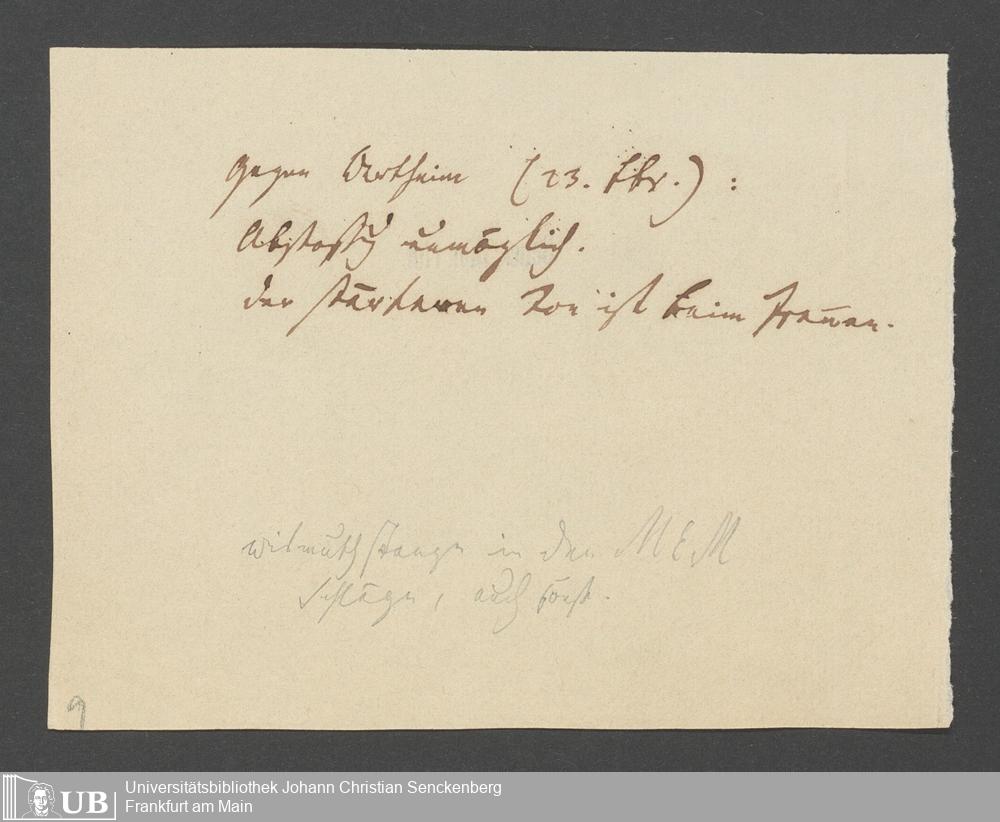 gegen Wertheim (23. Fbr.):
Abstoßg unmöglich.
der stärkeren Ton ist beim
Wismuthstange in den
Schläge, auch sonst.
9
UB
Universitätsbibliothek Johann Christian Senckenberg
Frankfurt am Main